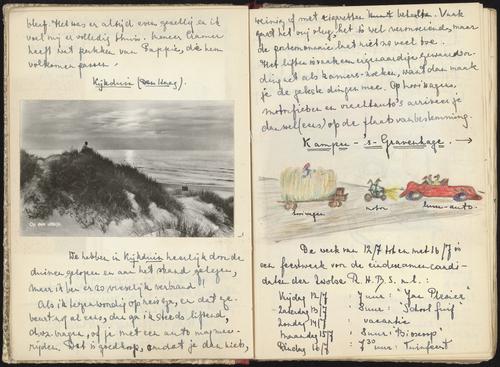 bleef. Het was er altijd even gezellig en ik
voel mij er volledig thuis. Meneer Cramer
heeft wat pakken van Pappie, die hem
volkomen passen.
Kijkduin (Den Haag).
Op den uitkijk
We hebben in Kijkduin heerlijk door de
duinen gelopen en aan het strand gelegen,
maar ik ben er zo vreselijk verbrand!
Als ik tegenwoordig op reis ga, en dat ge-
beurt nog al eens, dan ga ik steeds liftend,
d.w.z. vragen, of je met een auto mag mee-
rijden. Dat is goedkoop, omdat je dan niets,
weinig of met sigaretten kunt betalen. Vaak
gaat het vrij vlug, het is wel vermoeiend, maar
de portemonnaie lijdt niet zo veel toe.
Het liften is vaak een eigenaardige gewaarwor-
ding net als kamers-zoeken, want dan maak
je de gekste dingen mee. Op hooiwagens,
motorfietsen en vrachtauto's arriveer je
dan wel (eens) op de plaats van bestemming.
Kampen - 's-Gravenhage. →
hooiwagen
motor
luxe-auto.
De week van 12/7 tot en met 16/7 is
een feestweek voor de eindexamencandi-
daten der Zwolse R.H.B.S. n.l.:
Vrijdag 12/7 : 7 uur: "Jan Plezier"
Zaterdag 13/7 : 8 uur: Schoolfuif
Zondag 14/7 : vacantie
Maandag 15/7 : 8 uur: Bioscoop
Dinsdag 16/7 : 7 30 uur: Tuinfeest